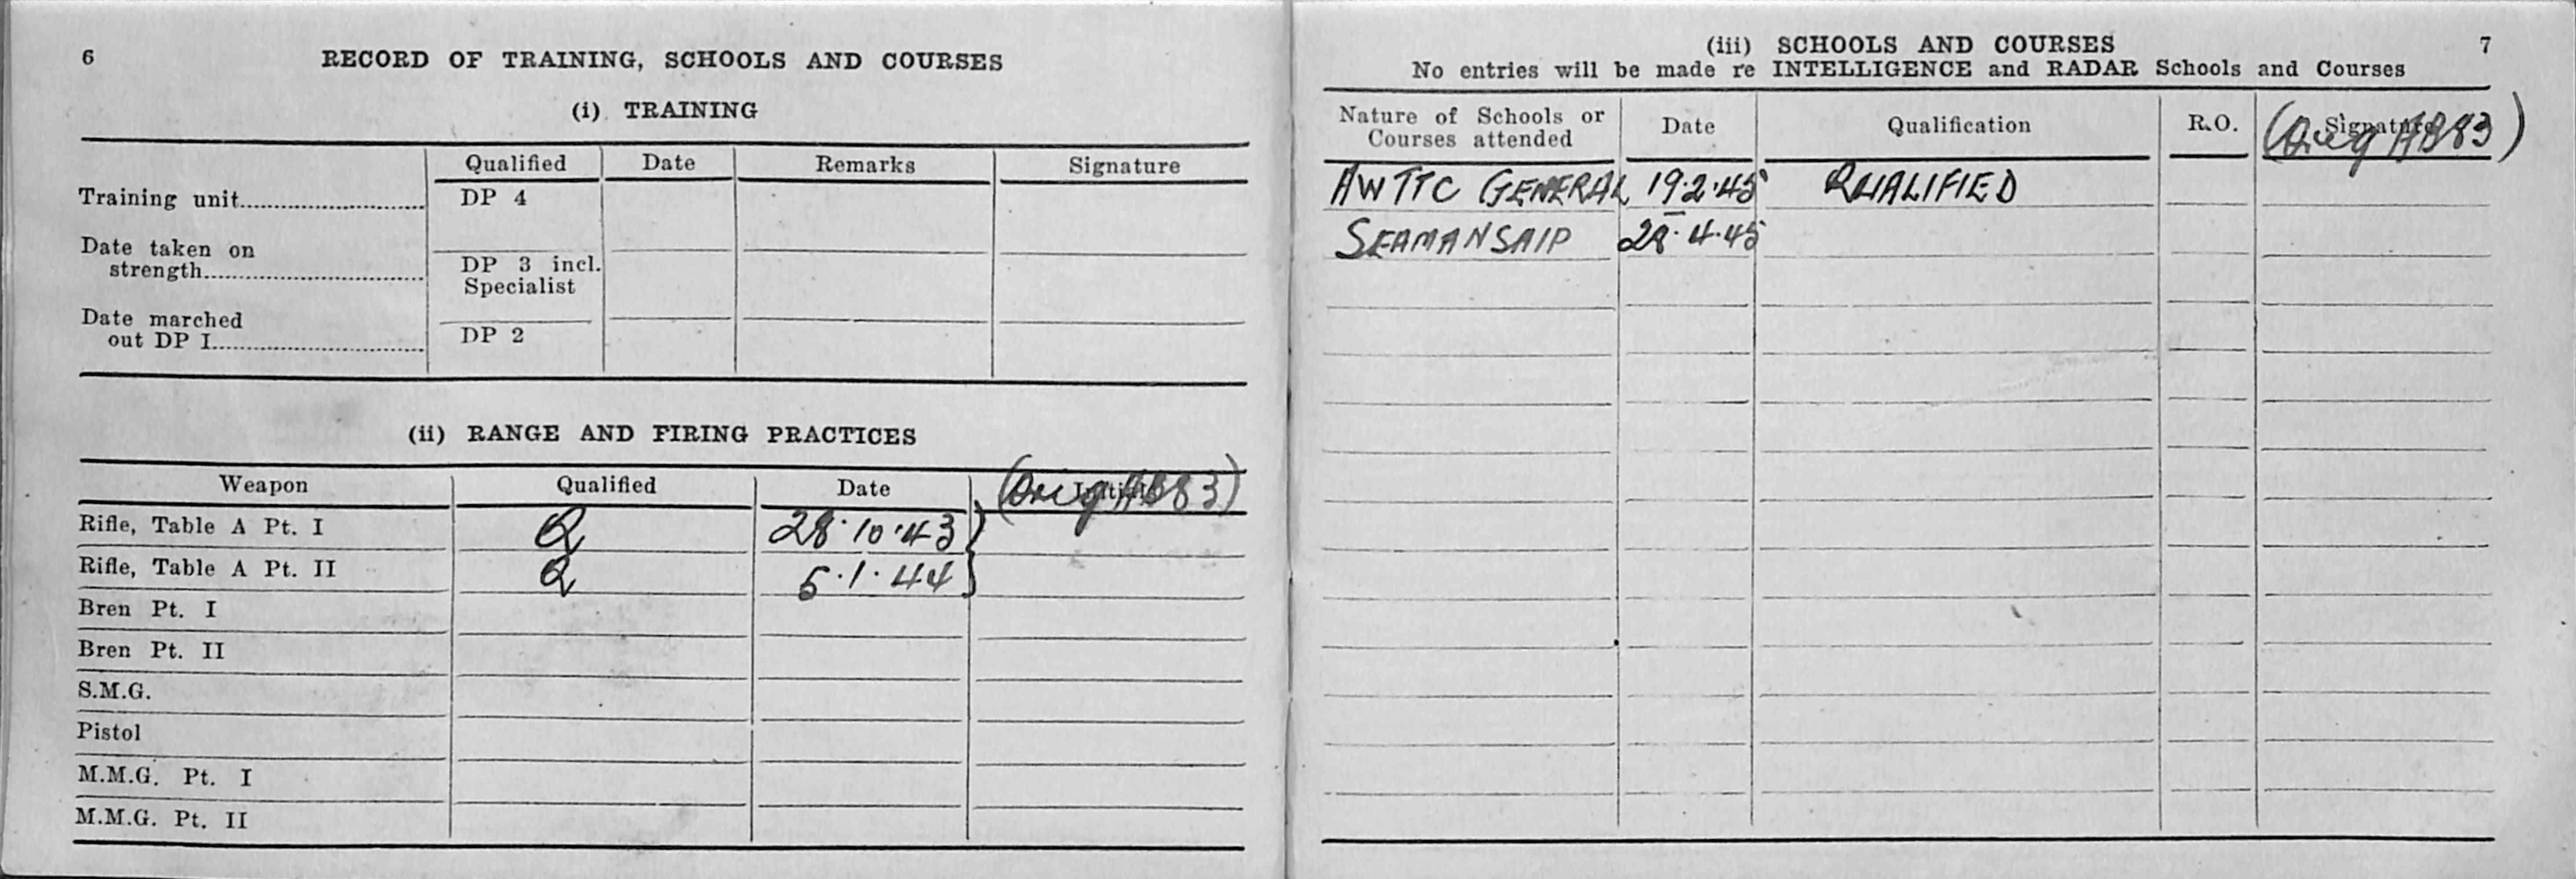 6
RECORD OF TRAINING, SCHOOLS AND COURSES
(i) TRAINING
Qualified Date Remarks Signature
Training unit DP 4
Date taken on
strength DP 3 incl.
Specialist
Date marched
out DP I DP 2
(ii) RANGE AND FIRING PRACTICES
Weapon Qualified Date Initials (Orig AB83)
Rifle, Table A Pt. I Q 28.10.43
Rifle, Table A Pt. II Q 5.1.44
Bren Pt. I
Bren Pt. II
S.M.G.
Pistol
M.M.G. Pt. I
M.M.G. Pt. II
(iii) SCHOOLS AND COURSES 7
No entries will be made re INTELLIGENCE and RADAR Schools and Courses
Nature of Schools or
Courses attended Date Qualification R.O. Signature (Orig AB83)
AWTTC GENERAL 19.2.45 QUALIFIED
SEAMANSAIP 28.4.45